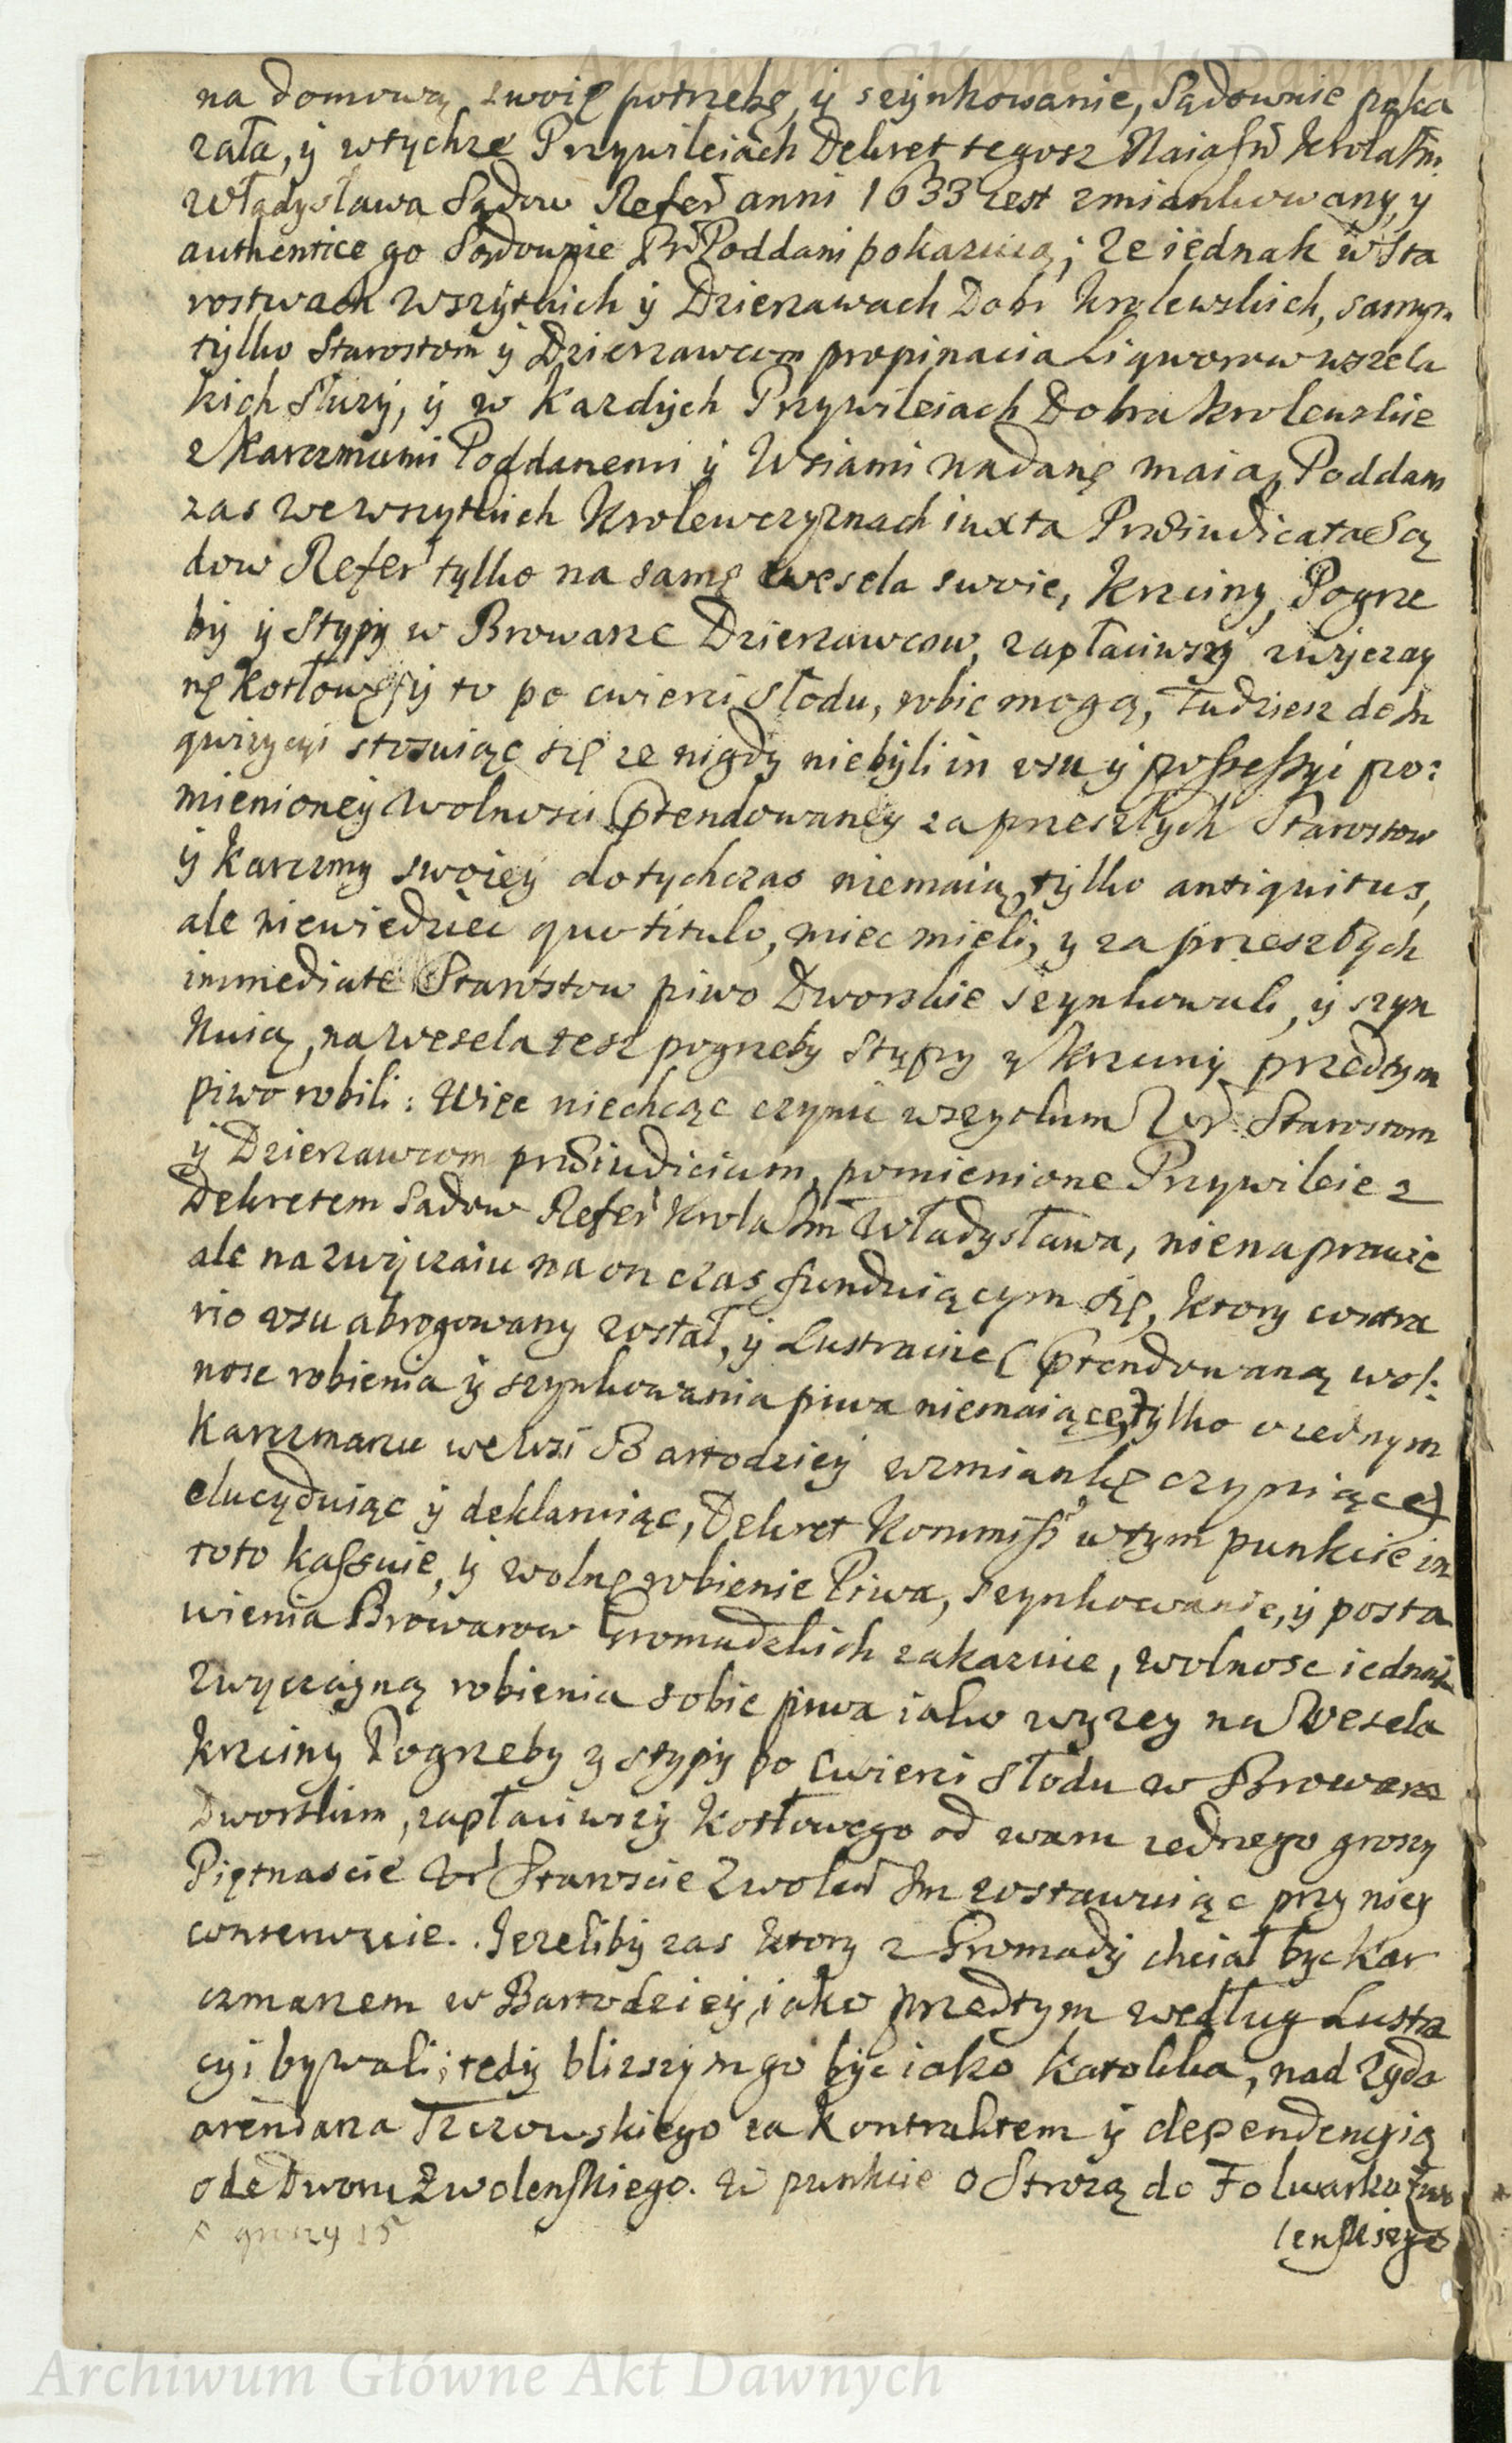 Archiwum Główne Akt Dawnych
na domową swoię potrzebę, y szÿnkowanie, Sądownie poka
zała, ÿ wtychze Przywileiach Dekret tegosz Naiaśń Krola Jm.
Władysława Sądow Refeř anni 1633 iest zmiankowany, y
authentice go Sądownie Pň Poddani pokazuią; ze iednak w Sta
rostwach wszÿtkich ÿ Dzierzawach Dobr Krolewskich, samym
tÿlko Starostom ÿ Dzierzawcom propinacia Liqworow wszela
kich słuzÿ, ÿ w Kazdÿch Przywileiach Dobra krolewskie
z Karczmami Poddanemi ÿ Wsiami nadanę maią, Poddani
zas we wszytkich Krolewczyznach iuxta Præiudicata Są
dow Refeř tylko na samę wesela swoie, Krzciny, Pogrze
bÿ ÿ Stypÿ w Browarze Dzierzawcow, zapłaciwszÿ zwÿczaÿ
nę Kotłowę, ÿ to po cwierci Słodu, robic mogą, Tudziesz do In
qwizycyi stosuiąc się ze nigdy niebÿli in usu ÿ possessyi po:
mienioneÿ Wolnosci ptendowaneÿ za przeszłych Starostow
ÿ Karczmy swoieÿ dotychczas niemaią, tÿlko antiquitus,
ale niewiedziec quo titulo, miec mieli, y za przeszłych
immediate Starostow piwo Dworskie szynkowali, ÿ szyn
kuią, na Wesela tesz pogrzeby Stypy y Krzciny przedtym
piwo robili: Więc niechcąc czynic wszytkim Ur. Starostom
ÿ Dzierzawcom præiudicium, pomienione Przywileie z
Dekretem Sadow Refeř Krola Jm Władysława, nienaprawie
ale na zwÿczaiu na on czas funduiącym się, ktory contra
rio usu abrogowany został, ÿ Lustracÿie (ptendowaną wol:
nosc robienia ÿ szynkowania piwa niemaiące, tylko o iednym
Karczmarzu we Wsi Bartodzieÿ wzmiankę czyniące)
elucyduiąc ÿ deklaruiąc, Dekret Kommiss w tym punkcie in
toto kassuie, ÿ wolnę robienie Piwa, szynkowanie, ÿ posta
wienia Browarow Gromadzkich zakazuie, wolnosc iednak
zwyczaÿną robienia sobie piwa iako wyzey na Wesela
krzciny Pogrzeby y stypÿ po Cwierci Słodu w Browarze
Dworskim, zapłaciwszÿ kotłowego od waru iednego groszy
Piętnascie Ur Staroscie Zwolen Jm zostawuiąc przy niey
conserwuie. Jezelibÿ zas ktory z Gromadÿ chciał byc Kar
czmarzem w Bartodzieÿ, iako przedtym według Lustra
cyi bywali; tedÿ blizszym go bÿc iako Katolika, nad Zyda
arendarza Tczowskiego za Kontraktem ÿ dependencyią
ode Dworu Zwolenskiego. W punkcie o Strozą do Folwarku Zwo
lenskiego
groszy 15
Archiwum Główne Akt Dawnych